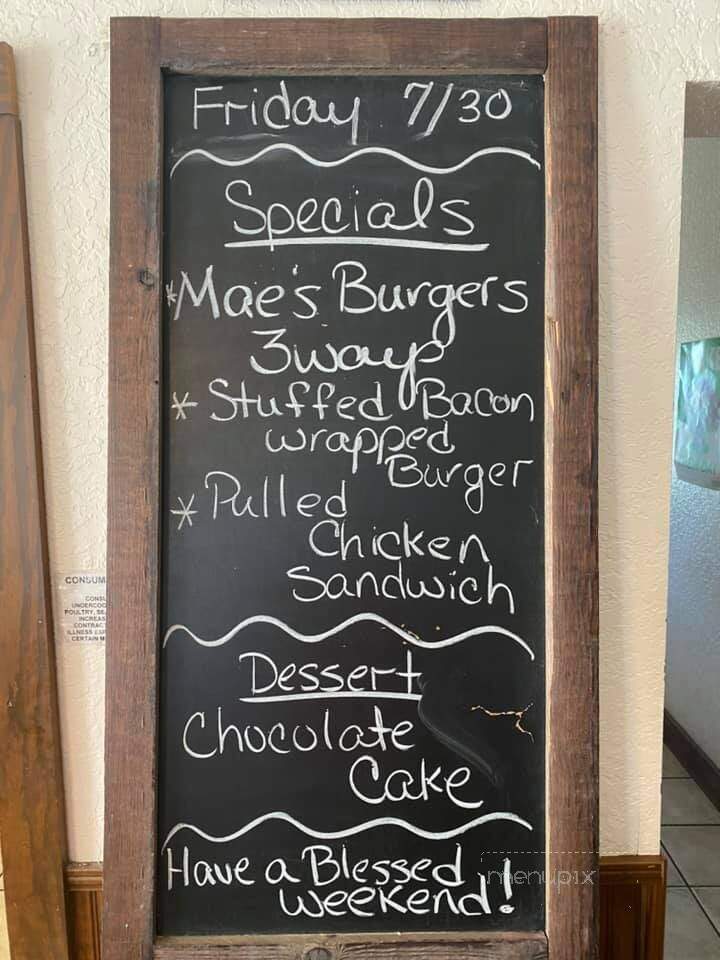 Friday 7/30
Specials
*Mae's Burgers
3wayp
* Stuffed Bacon
wrapped
Burger
* Pulled
Chicken
Sandwich
Dessert
Chocolate
Cake
Have a Blessed
weekend!
menupix
CONSUM
UNDERCOO
POULTRY, SE
INCREAS
CONTRAC
CERTAIN M